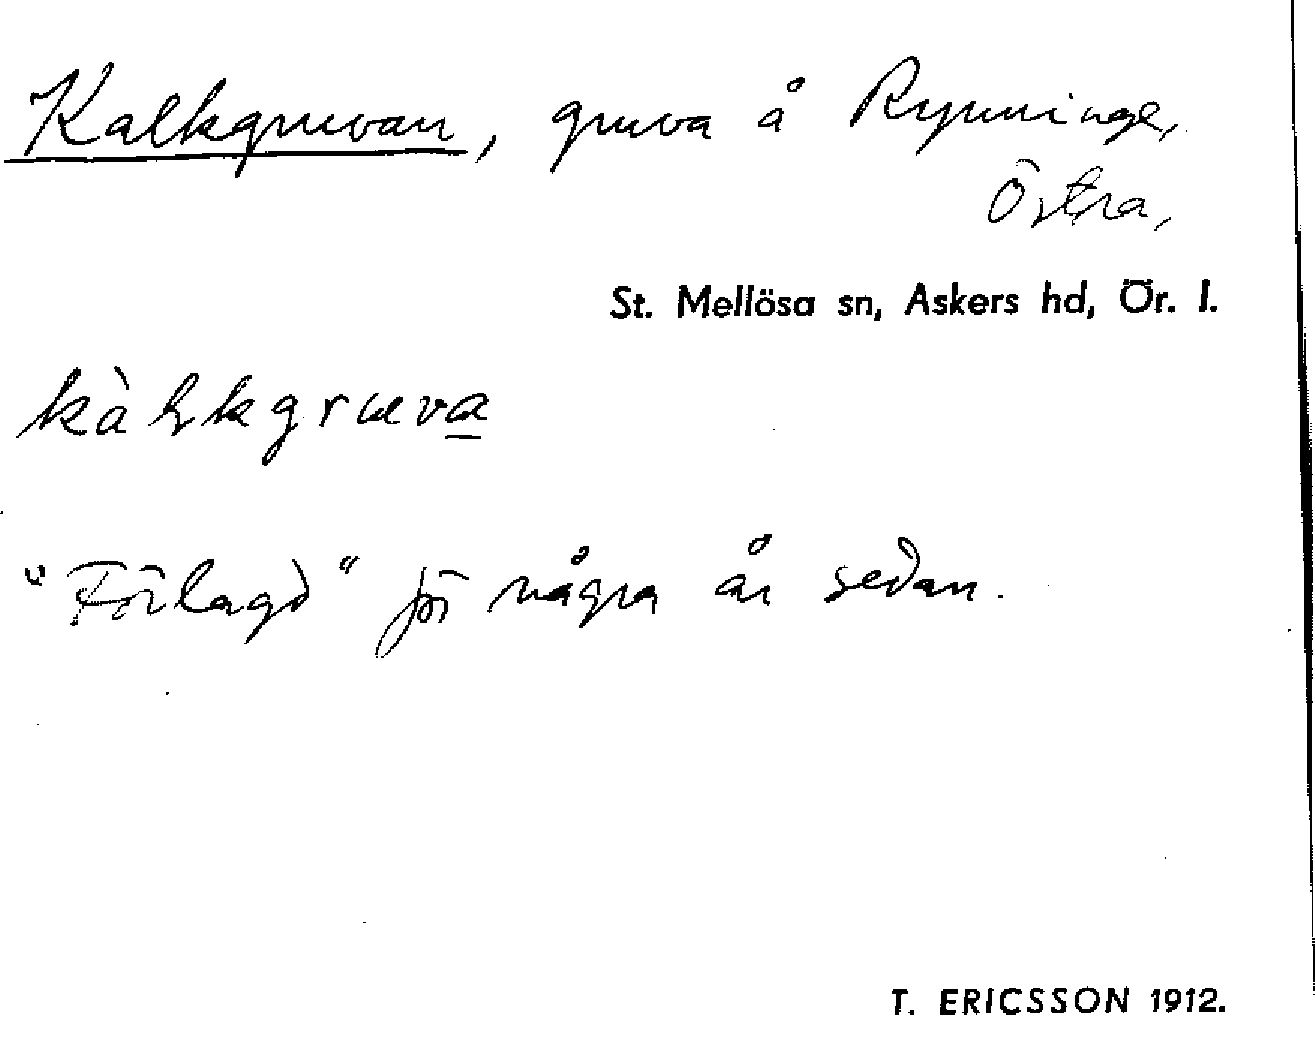 Kalkgruvan, gruva å Rynninge,
Östra,
St. Mellösa sn, Askers hd, Ör. l.
"Förlagd" för några år sedan.
T. ERICSSON 1912.